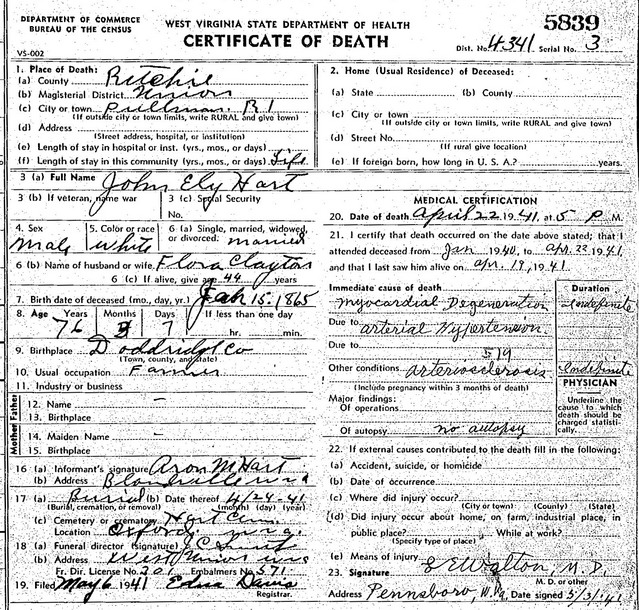 DEPARTMENT OF COMMERCE
BUREAU OF THE CENSUS
VS-002
WEST VIRGINIA STATE DEPARTMENT OF HEALTH
CERTIFICATE OF DEATH
5839
Dist. No. 4341 Serial No. 3
1. Place of Death:
(a) County Ritchie
(b) Magisterial District Union
(c) City or town Pullman. R 1
(If outside city or town limits, write RURAL and give town)
(d) Address
(Street address, hospital, or institution)
(e) Length of stay in hospital or inst. (yrs., mos., or days)
(f) Length of stay in this community (yrs., mos., or days) Life
2. Home (Usual Residence) of Deceased:
(a) State (b) County
(c) City or town
(If outside city or town limits, write RURAL and give town)
(d) Street No.
(If rural give location)
(e) If foreign born, how long in U. S. A.? years.
3 (a) Full Name John Ely Hart
3 (b) If veteran, name war 3 (c) Social Security No.
4. Sex Male 5. Color or race White 6 (a) Single, married, widowed, or divorced: married
6 (b) Name of husband or wife Flora Clayton
6 (c) If alive, give age 44 years
7. Birth date of deceased (mo., day, yr.) 15. 1865
8. Age Years 76 Months 3 Days 7 If less than one day hr. min.
9. Birthplace Doddridge Co
(Town, county, and state)
10. Usual occupation Farmer
11. Industry or business
Father
12. Name –
13. Birthplace
Mother
14. Maiden Name –
15. Birthplace
16 (a) Informant's signature Aron M Hart
(b) Address
17 (a) Burial (b) Date thereof 4/24-41
(Burial, cremation, or removal) (month) (day) (year)
(c) Cemetery or crematory Hart Cem.
Location Oxford
18 (a) Funeral director (signature)
(b) Address West Union
Fr. Dir. License No. 301 Embalmers No. 571
19. Filed May 6 1941 Edna Davis
Registrar.
MEDICAL CERTIFICATION
20. Date of death April 22 1941 at 5 P M.
21. I certify that death occurred on the date above stated; that I
attended deceased from Jan 1940, to apr. 22 1941
and that I last saw him alive on apr. 19, 1941
Immediate cause of death Duration
Myocardial Degeneration Indefinite
Due to arterial Hypertension.
Due to
579
Other conditions arteriosclerosis Indefinite
(Include pregnancy within 3 months of death)
Major findings:
Of operations
Of autopsy no autopsy
PHYSICIAN
Underline the cause to which death should be charged statistically.
22. If external causes contributed to the death fill in the following:
(a) Accident, suicide, or homicide
(b) Date of occurrence
(c) Where did injury occur?
(City or town) (County) (State)
(d) Did injury occur about home, on farm, industrial place, in
public place? While at work?
(Specify type of place)
(e) Means of injury
23. Signature E E Walton, M. D.
M. D. or other
Address Pennsboro, W.Va. Date signed 5/3/41